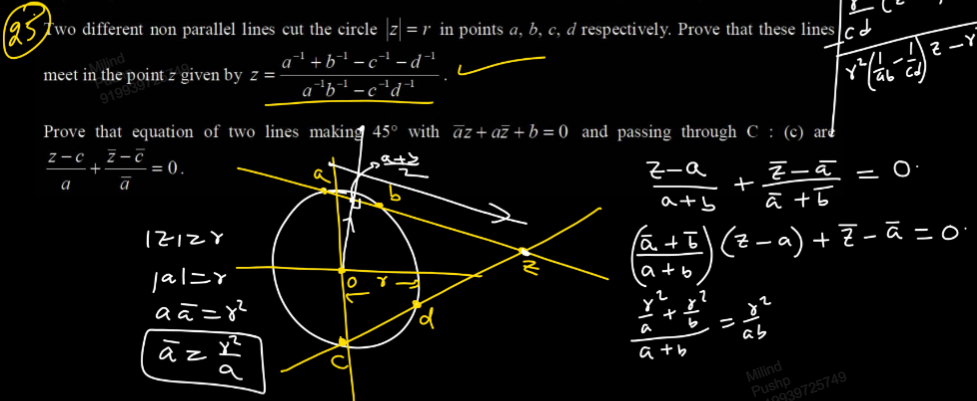 25 Two different non parallel lines cut the circle |z| = r in points a, b, c, d respectively. Prove that these lines
meet in the point z given by z = (a⁻¹ + b⁻¹ − c⁻¹ − d⁻¹)/(a⁻¹b⁻¹ − c⁻¹d⁻¹).
Prove that equation of two lines making 45° with āz + az̄ + b = 0 and passing through C : (c) are
(z − c)/a + (z̄ − c̄)/ā = 0.
cd
r²(1/ab − 1/cd) z − r
a
b
z
d
c
o
r
|z| = r
|a| = r
a ā = r²
ā = r²/a
(z − a)/(a + b) + (z̄ − ā)/(ā + b̄) = 0
((ā + b̄)/(a + b)) (z − a) + z̄ − ā = 0
(r²/a + r²/b)/(a + b) = r²/ab
Milind
Pushp
9939725749
Milind